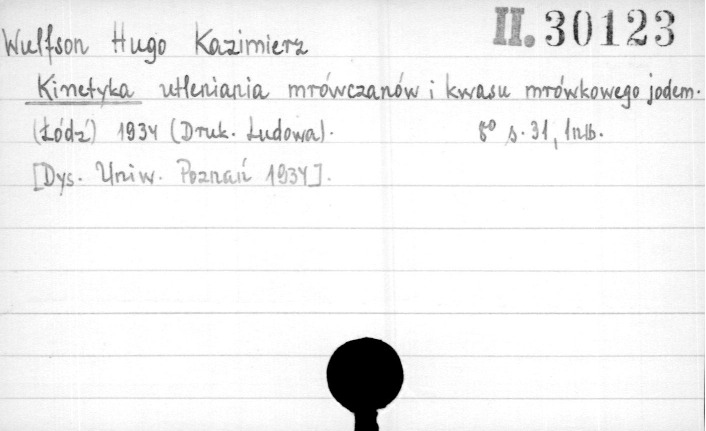 II. 30123
Wulfson Hugo Kazimierz
Kinetyka utleniania mrówczanów i kwasu mrówkowego jodem.
(Łódź) 1934 (Druk. Ludowa). 8º s. 31, 1 nlb.
[Dys. Uniw. Poznań 1934].